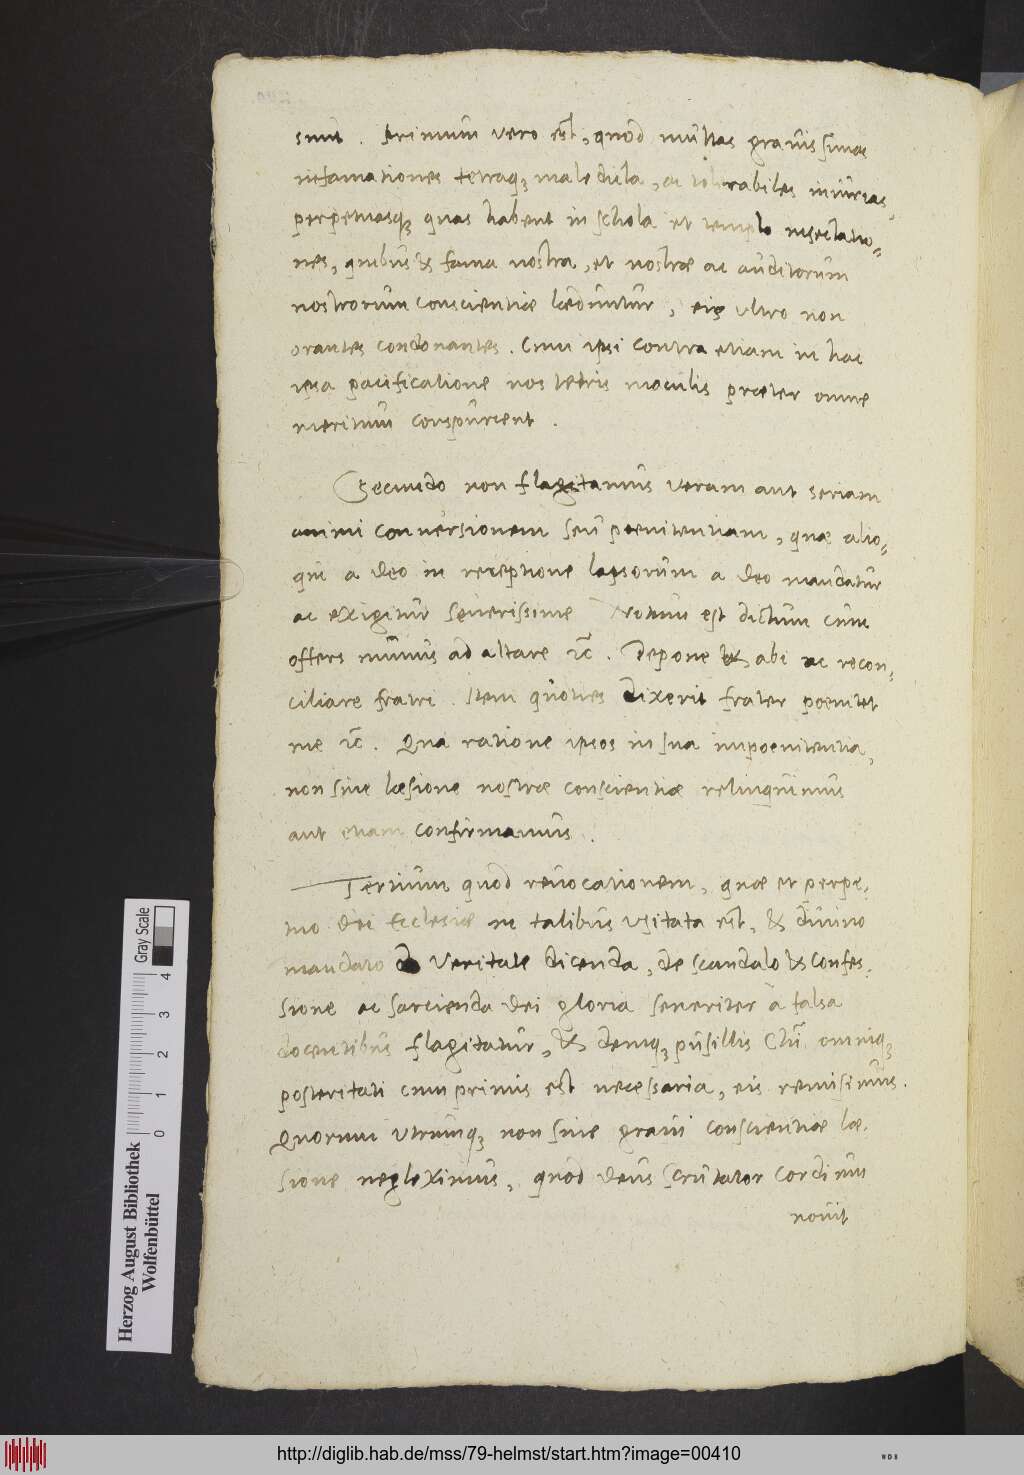 sunt. Primum vero est, quod multas gravissimas
infamationes tetraq3 maledicta, ac tolerabiles iniurias,
perpetuasq3 quas habent in schola et templo insectatio-
nes, quibus & fama nostra, et nostrae ac auditorum
nostrorum conscientiae laeduntur, eis ultro non
orantes condonantes. Cum ipsi contra etiam in hac
ipsa pacificatione nos tetris maculis praeter omne
meritum conspurcent.
Secundo non flagitamus veram aut seriam
animi conversionem seu poenitentiam, quae alio-
qui a deo in receptione lapsorum a deo mandatur
ac exigitur severissime Notum est dictum cum
offers munus ad altare ec. Depone & abi ac recon-
ciliare fratri. Item quoties dixerit frater poenitet
me ec. Qua ratione ipsos in sua impoenitentia,
non sine laesione nostrae conscientiae relinquimus
aut etiam confirmamus.
Tertium quod revocationem, quae et perpe-
tuo Dei Ecclesiae in talibus usitata est, & divino
mandato de veritate dicenda, de scandalo & confes-
sione ac sarcienda Dei gloria severiter à falsa
docentibus flagitatur, & deniq3 pusillis Chri omniq3
posteritati cum primis est necessaria, eis remisimus.
Quorum utrumq3 non sine gravi conscientiae lae-
sione negleximus, quod Deus scrutator cordium
novit
Herzog August Bibliothek
Wolfenbüttel
0 1 2 3 4
Gray Scale
http://diglib.hab.de/mss/79-helmst/start.htm?image=00410